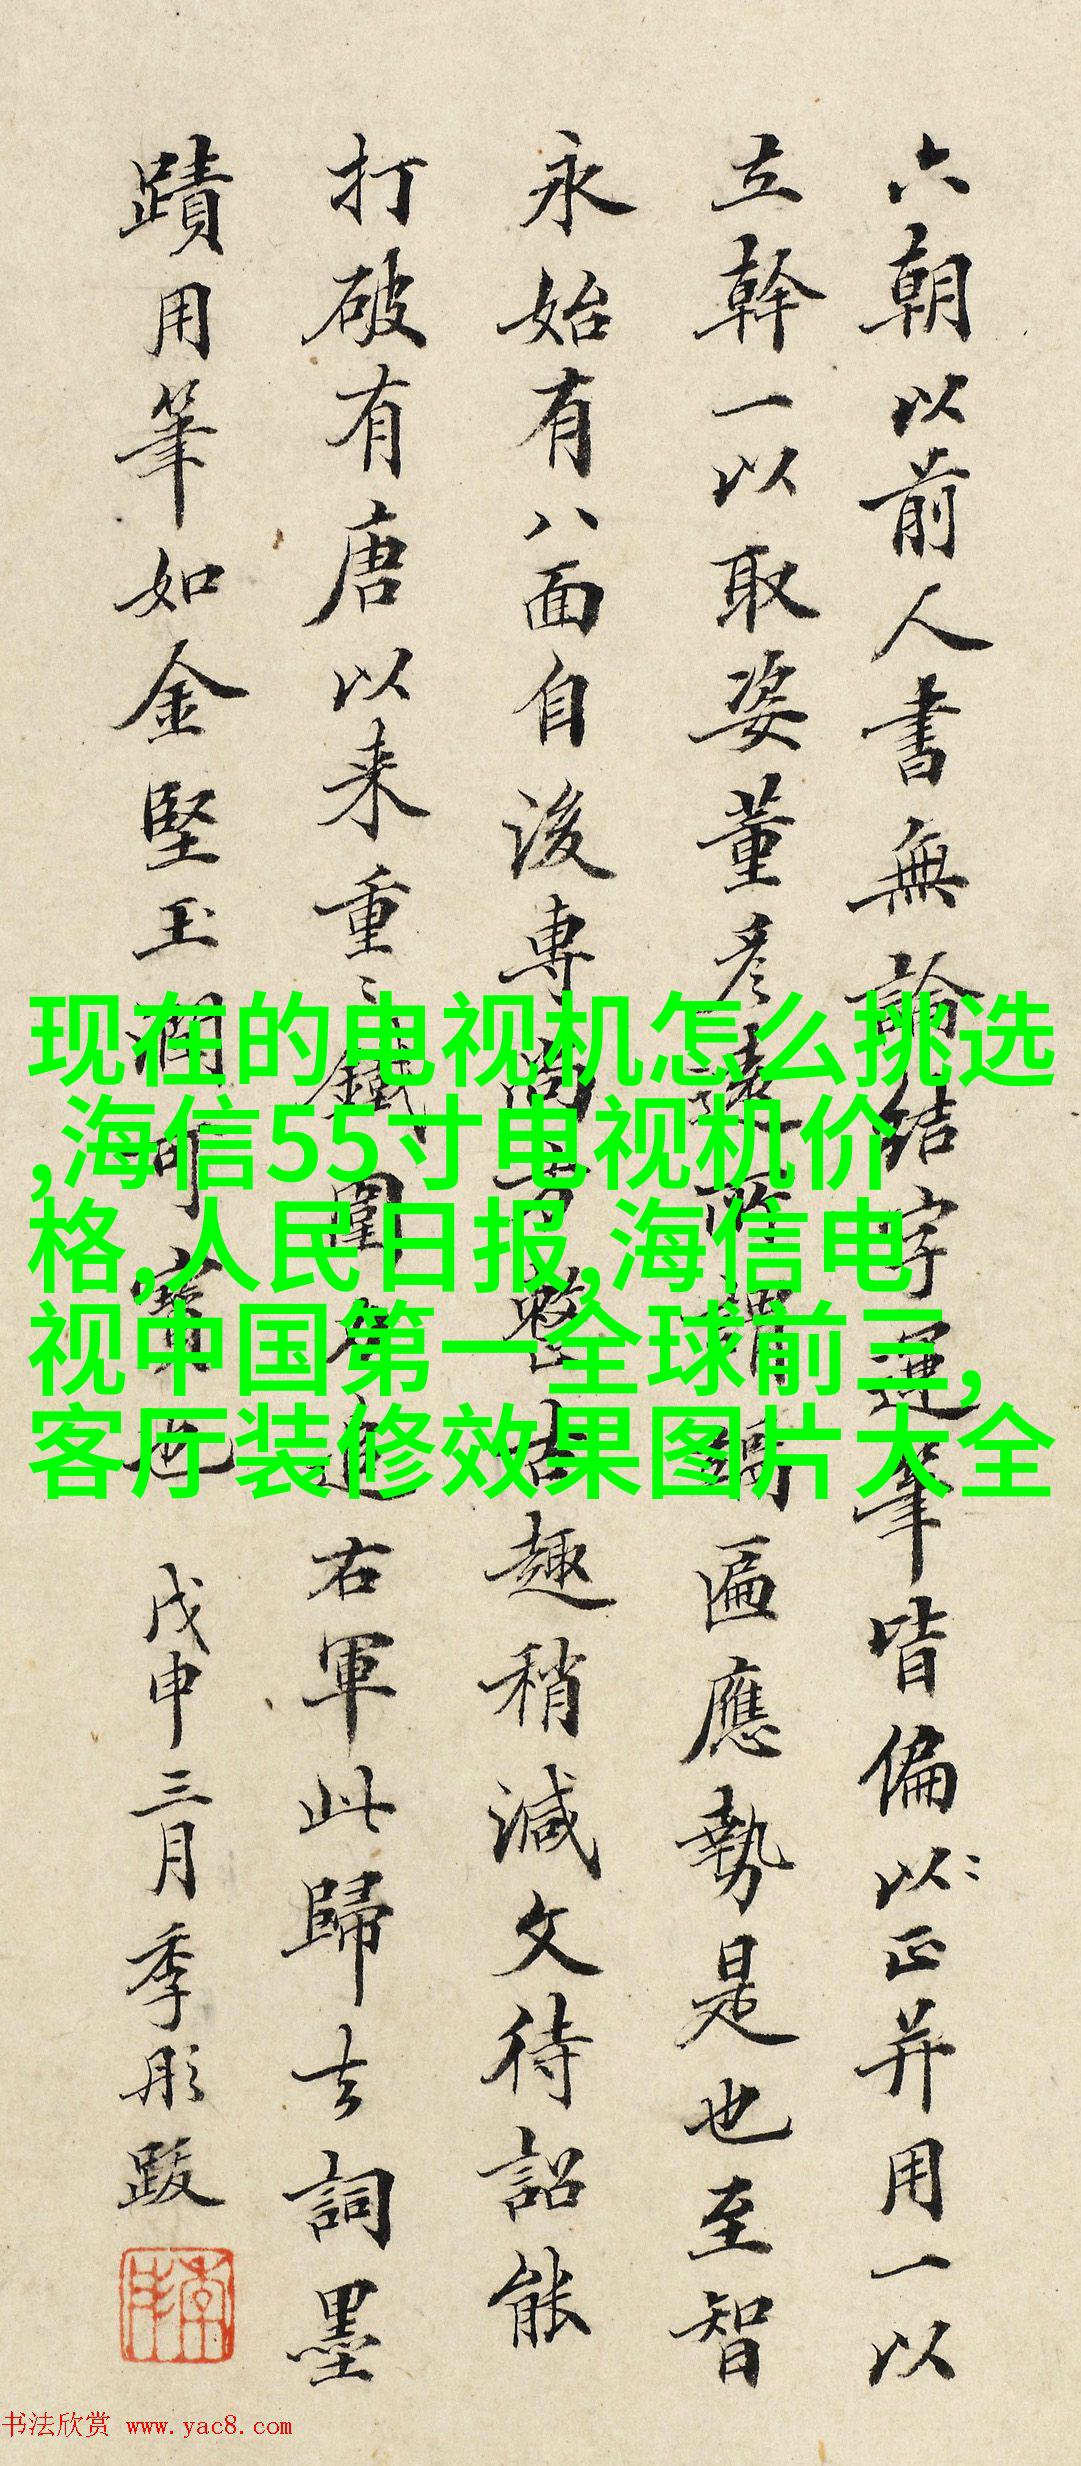 六朝以前人書無論結字運筆皆偏以〻正并用一以
立幹一以取姿董彥遠所謂綿匾應勢是也至智
永始有八面自後專尚方整古趣稍減文待詔能
打破有唐以来重〻鐵圍力追右軍此歸去詞墨
蹟用筆如金堅玉潤可寶也 戊申三月季彤跋
现在的电视机怎么挑选
,海信55寸电视机价
格,人民日报,海信电
视中国第一全球前三,
客厅装修效果图片大全
书法欣赏 www.yac8.com